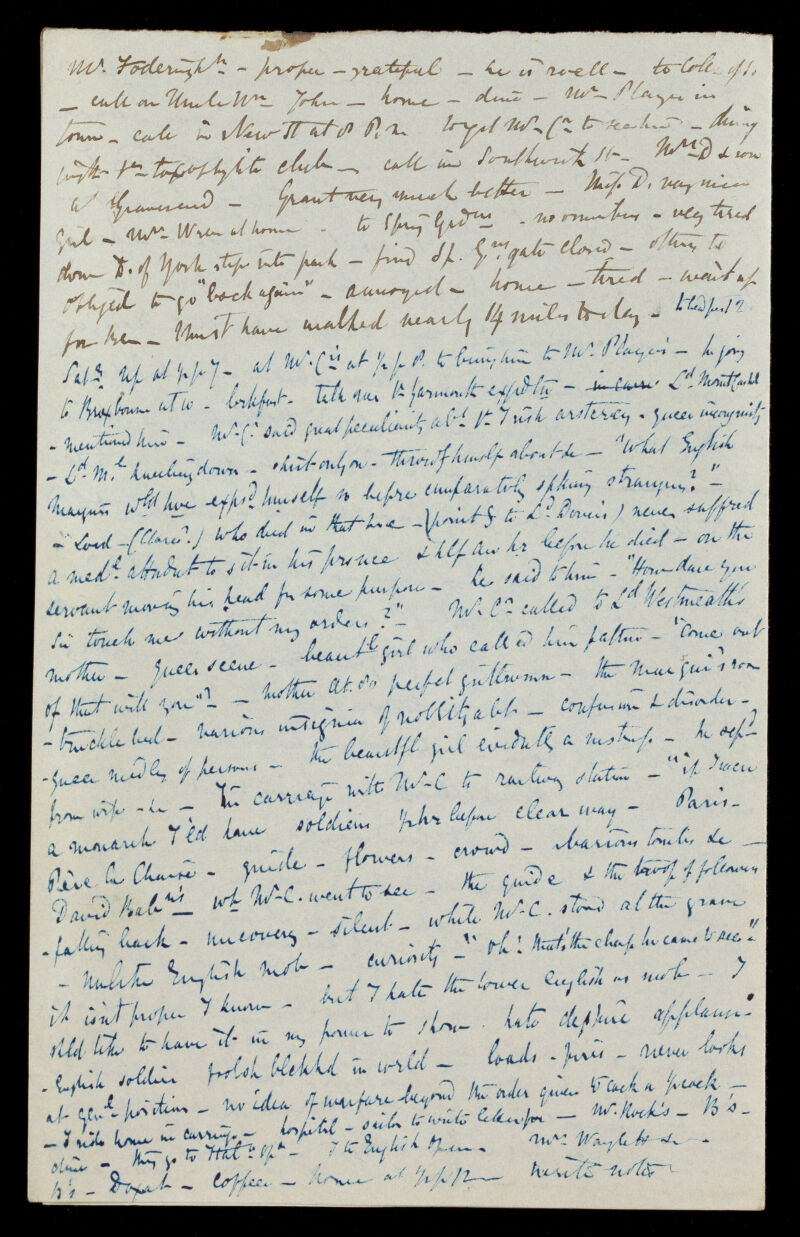 Mr. - proper - grateful - he is well - to Coll. of S.
- call on Uncle Wm John - home - dine - Mr Player in
town - call in New St at 8 P.M. to get Mr. Cn to see him - dining
with club - call in Southwick St - Mrs D & son
at Gravesend - Grant very much better - Miss D. very nice
girl - Mrs Wren at home - to Spring Grdns - no - very tired
down D. of York steps into park - find Sp. Gns gate closed -
obliged to go "back again" - annoyed - home - tired - wait up
for Ben - Must have walked nearly 14 miles to day - to bed past 2
Saty up at ½ p 7 - at Mr. Cn's at ½ p 8. to bring him to Mr. Player's - he going
to Broxbourne at 10 - brkfast - talk over Yarmouth expedtn - Ld Mountcashel
- mentioned him - Mr. C. said great peculiarity abt ye Irish - queer
- Ld M.'s kneeling down - shirt only on - throwg himself about &c - "What English
Marquis wld have exposd himself so before comparatively spking strangers?" -
- "Lord - (Clare?) who died in that house - (pointg to Ld Downes) never suffred
a medl attendnt to sit in his prsnce & hlf an hr before he died - on the
servant moving his head for some purpose - he said to him - "How dare you
Sir touch me without my orders?" - Mr. Cn called to Ld Westmeath's
mother - queer scene - beautfl girl who called him father - "Come out
of that will you"? - mother æt. 80 perfect gentlewomn - the Marquis's room
- truckle bed - various insignia of nobility abt - confusion & disorder -
- queer medley of persons - the beautifl girl evidently a - he sepd
from wife &c - In carriage with Mr. C to railway station - "if I were
a monarch I'd have soldiers ½ hr before clear way - Paris -
Père la Chaise - guide - flowers - crowd - various tombs &c -
David's wh Mr. C. went to see - the guide & the troop of followers
- falling back - uncoverg - silent - while Mr. C. stood at the grave
- Unlike English mob - curiosity - "Oh! that's the chap he came to see"
it isn't proper I know - but I hate the lower English as mob - I
shld like to have it in my power to show hate despise applause.
- English soldier foolsh in world - loads - fires - never looks
at genl position - no idea of warfare beyond the order given to each
- I ride home in carriage - hospital - sailor to write letter for - Mr. Rock's - B's -
dine - they go to Italn Opa - I to English Opera - Mrs Waylett &c -
B's - - coffee - home at ½ p 12 - write notes